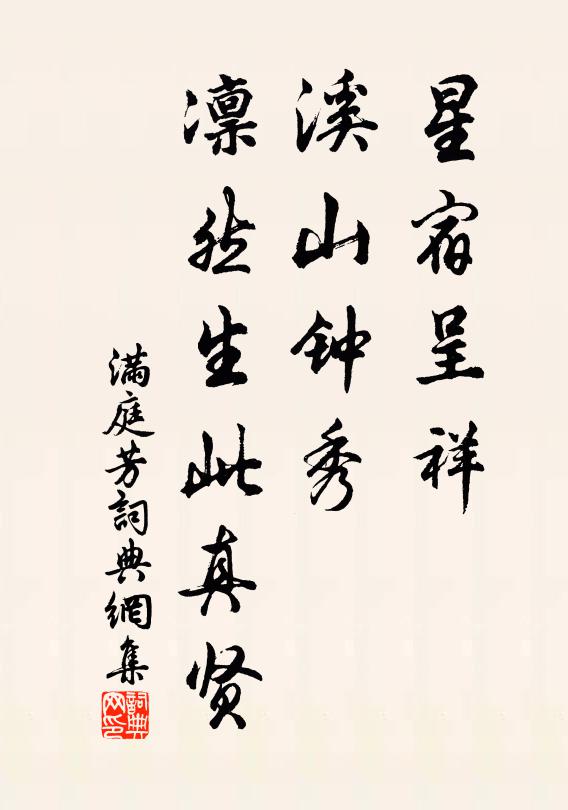 星宿呈祥
溪山钟秀
凛然生此真贤
满庭芳詞典網集
詞典网印